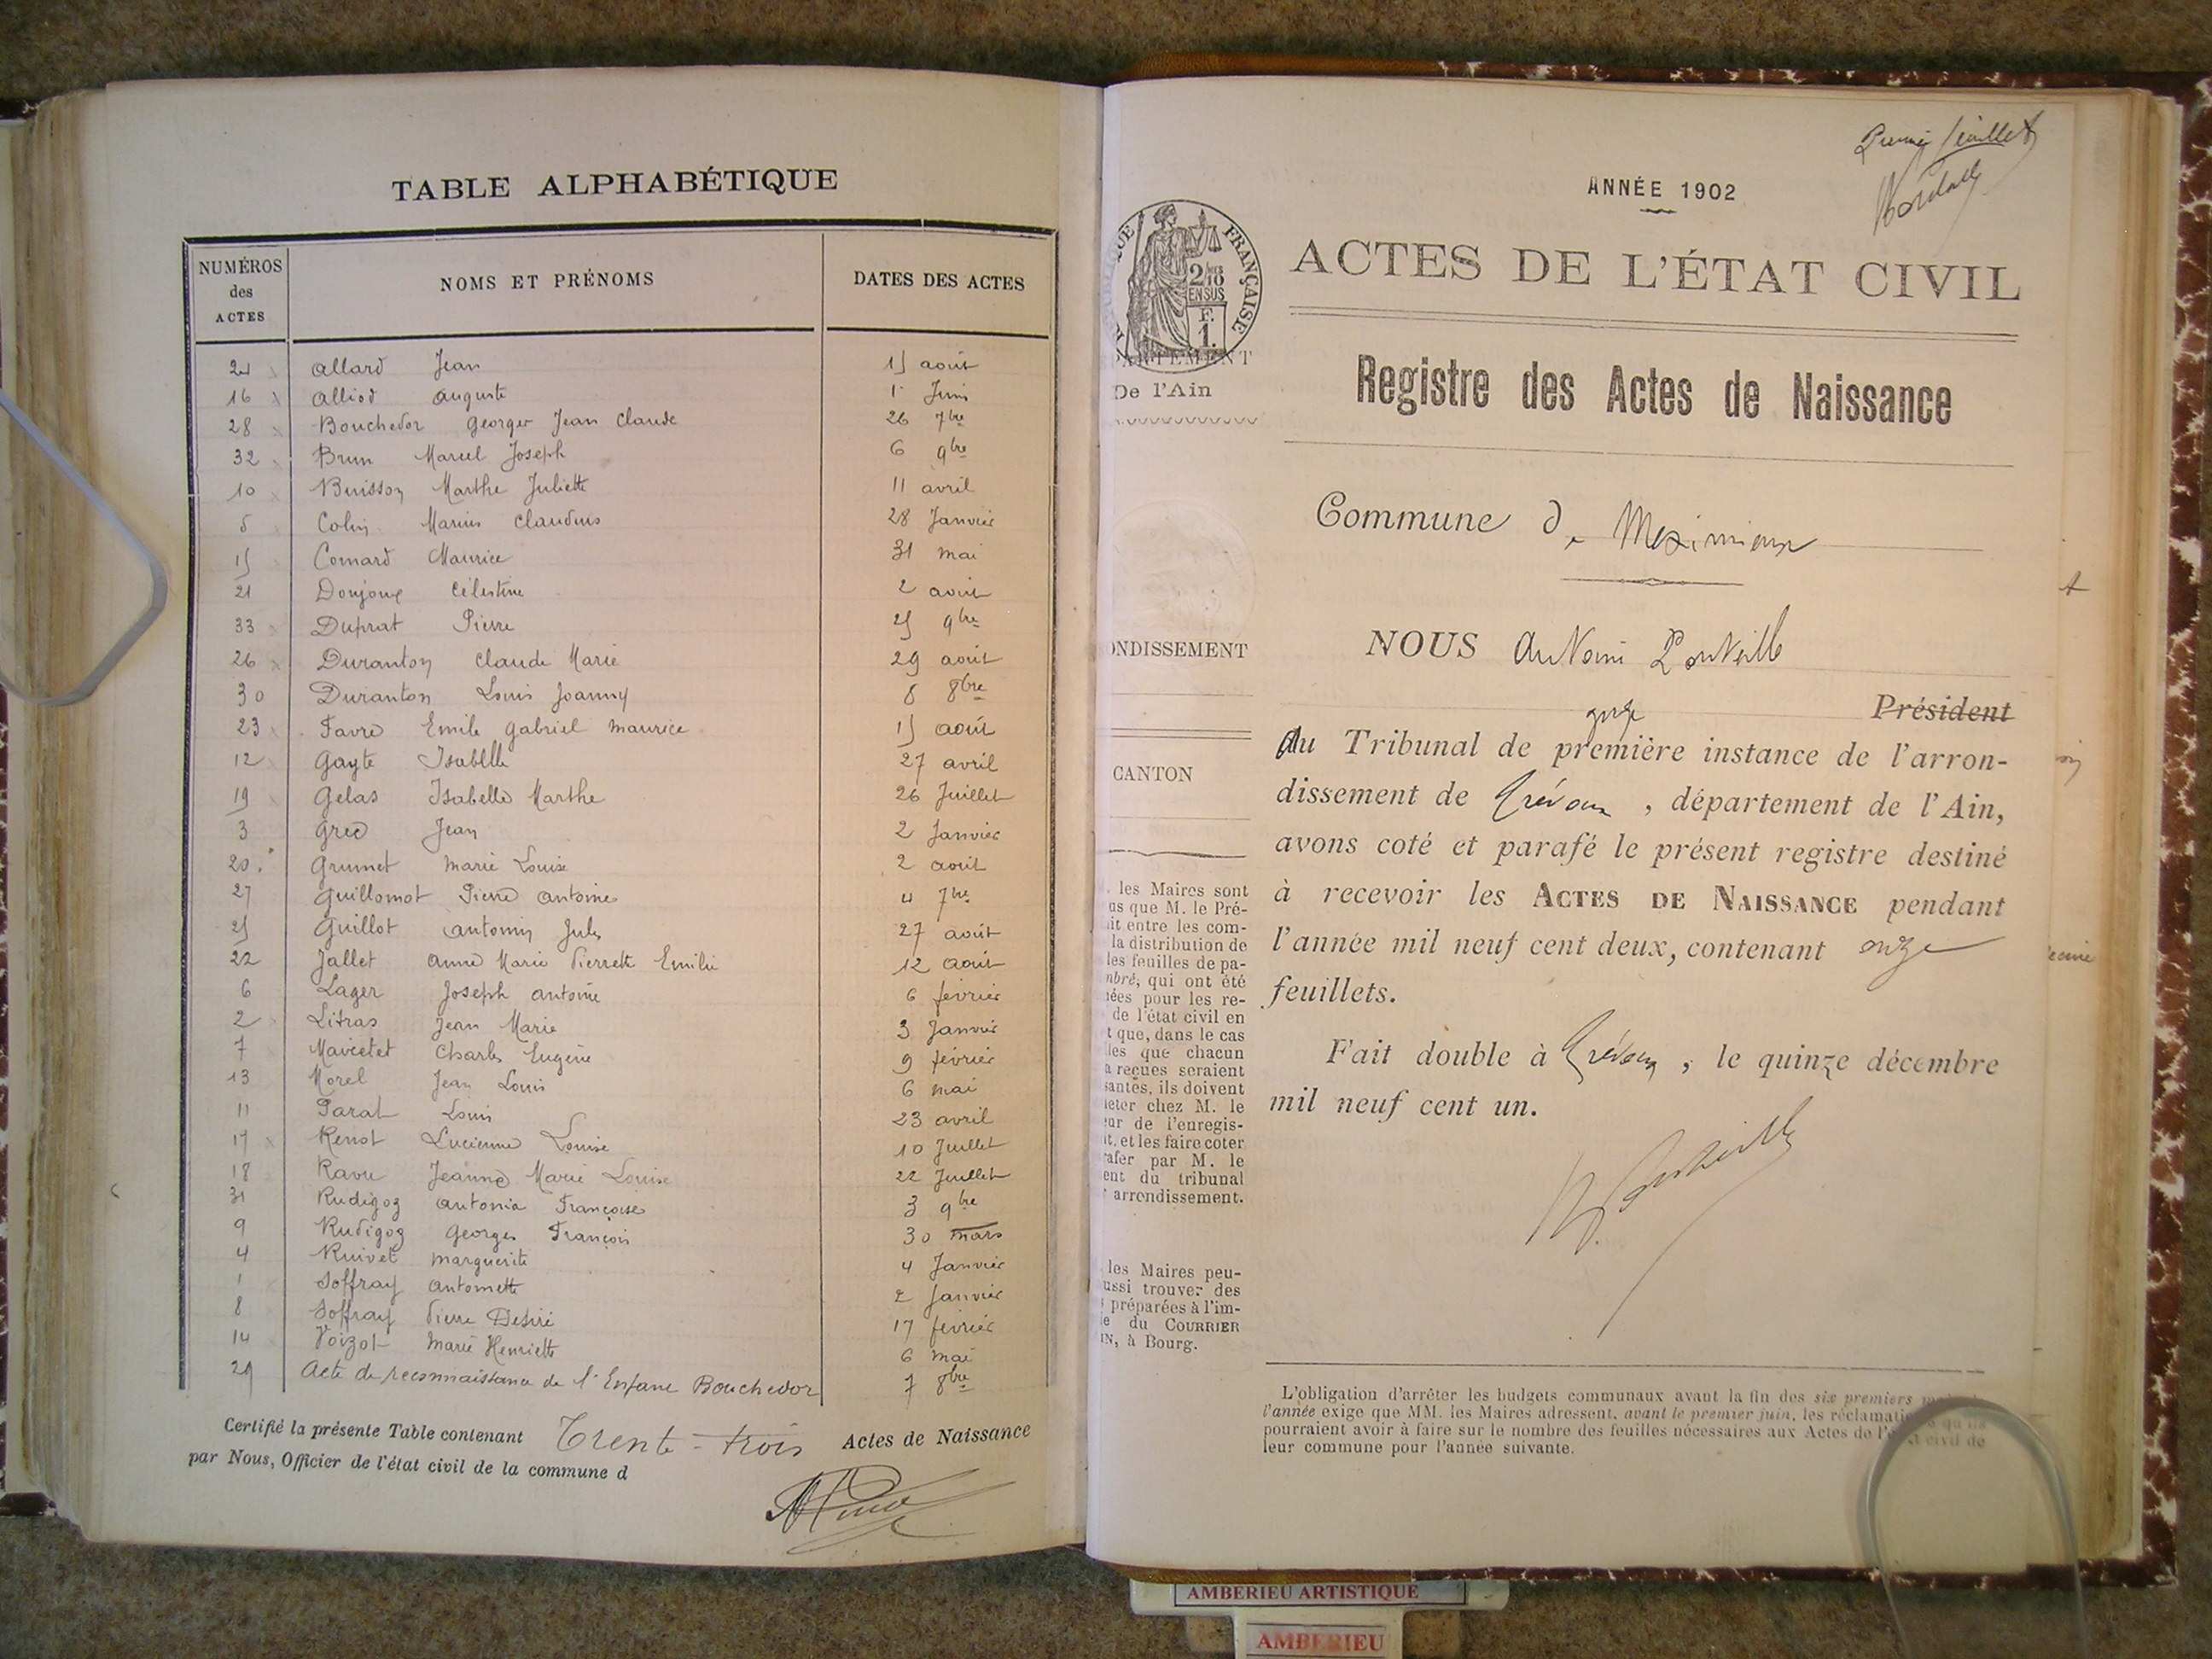 TABLE ALPHABÉTIQUE
NUMÉROS des ACTES NOMS ET PRÉNOMS DATES DES ACTES
24 Allard Jean 15 août
16 Alliod Auguste 1er Juin
28 Bouchedor Georges Jean Claude 26 7bre
32 Brun Marcel Joseph 6 9bre
10 Buisson Marthe Juliette 11 avril
5 Colin Marius Claudius 28 Janvier
15 Comard Maurice 31 mai
21 Donjoux Célestine 2 août
33 Duprat Pierre 25 9bre
26 Duranton Claude Marie 29 août
30 Duranton Louis Joanny 8 8bre
23 Favre Emile Gabriel Maurice 15 août
12 Gayte Isabelle 27 avril
19 Gelas Isabelle Marthe 26 Juillet
3 Grec Jean 2 Janvier
20 Grumet Marie Louise 2 août
27 Guillomot Pierre Antoine 4 7bre
25 Guillot Antonin Jules 27 août
22 Jallet Anne Marie Pierrette Emilie 12 août
6 Lager Joseph Antoine 6 février
2 Litras Jean Marie 3 Janvier
7 Charles Eugène 9 février
13 Morel Jean Louis 6 mai
11 Parat Louis 23 avril
17 Renot Lucienne Louise 10 Juillet
18 Ravu Jeanne Marie Louise 22 Juillet
31 Rudigoz Antonia Françoise 3 9bre
9 Rudigoz Georges François 30 mars
4 Ruivet Marguerite 4 Janvier
1 Joffray Antoinette 2 Janvier
8 Joffray Pierre Désiré 17 février
14 Voizot Marie Henriette 6 mai
29 Acte de reconnaissance de l'Enfant Bouchedor 7 8bre
Certifié la présente Table contenant Trente-trois Actes de Naissance
par Nous, Officier de l'état civil de la commune d
feuillet
ANNÉE 1902
FRANÇAISE
2/10 EN SUS
F. 1.
ACTES DE L'ÉTAT CIVIL
De l'Ain
Registre des Actes de Naissance
Commune de Meximieux
ONDISSEMENT
NOUS Antoine Ponteille
Président
juge
du Tribunal de première instance de l'arron-
CANTON
dissement de Trévoux, département de l'Ain,
avons coté et parafé le présent registre destiné
à recevoir les ACTES DE NAISSANCE pendant
l'année mil neuf cent deux, contenant onze
feuillets.
Fait double à Trévoux, le quinze décembre
mil neuf cent un.
les Maires sont
us que M. le Pré-
it entre les com-
la distribution de
les feuilles de pa-
mbré, qui ont été
nées pour les re-
de l'état civil en
t que, dans le cas
les que chacun
a reçues seraient
santes, ils doivent
eter chez M. le
ur de l'enregis-
t, et les faire coter
rafer par M. le
ent du tribunal
arrondissement.
les Maires peu-
ussi trouver des
préparées à l'im-
e du COURRIER
IN, à Bourg.
L'obligation d'arrêter les budgets communaux avant la fin des six premiers
l'année exige que MM. les Maires adressent, avant le premier juin, les réclamations qu'ils
pourraient avoir à faire sur le nombre des feuilles nécessaires aux Actes de l'état civil de
leur commune pour l'année suivante.
AMBERIEU ARTISTIQUE
AMBERIEU